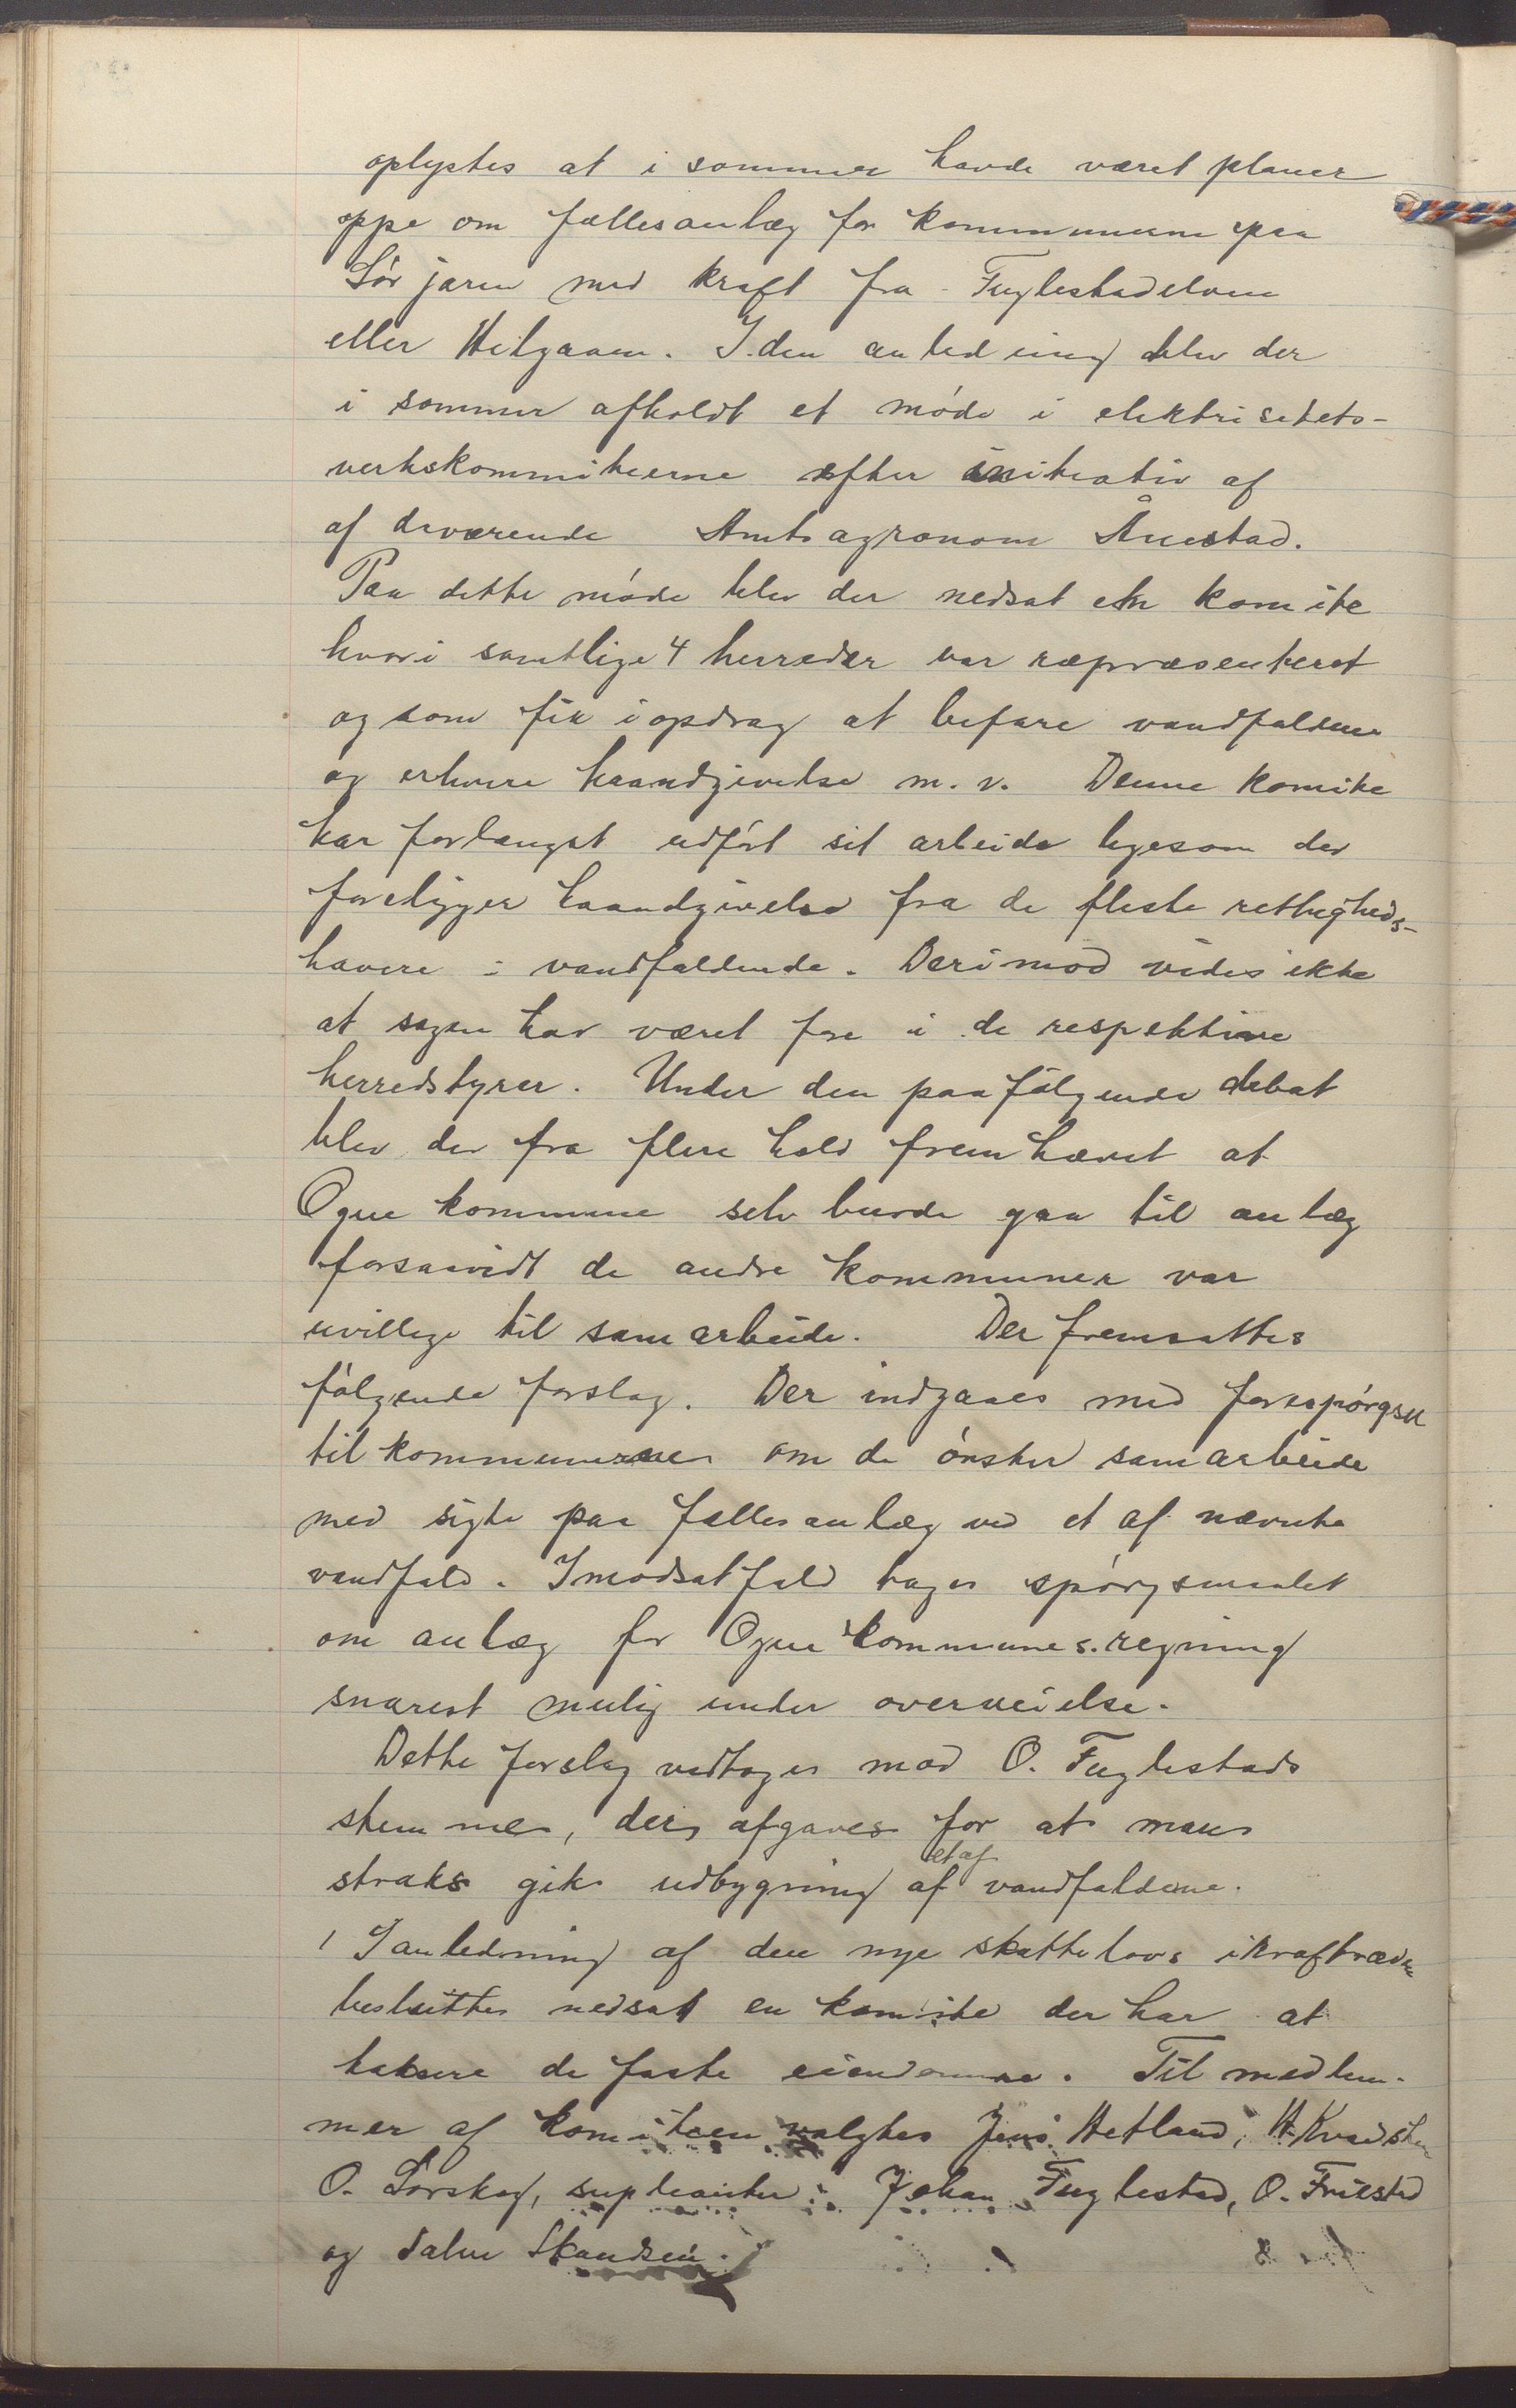 oplystes at i sommer havde været planer
oppe om fællesanlæg for kommunerne paa
Sør jæren med kraft fra Fuglestadelven
eller Helgaaen. I den anledning blev der
i sommer afholdt et møde i elektrisitets-
verkskommiteerne efter initiativ af
af daværende Amtsagronom Ånestad.
Paa dette møde blev der nedsat en komite
hvori samtlige 4 herreder var repræsenteret
og som fik i opdrag at befare vandfaldene
og erhverve haandgivelse m. v. Denne komite
har forlængst udført sit arbeide ligesom der
foreligger haandgivelse fra de fleste rettigheds-
havere i vandfaldende. Derimod vides ikke
at sagen har været fore i de respektive
herredstyrer. Under den paafølgende debat
blev der fra flere hold fremhævet at
Ogne kommune selv burde gaa til anlæg
forsaavidt de andre kommuner var
uvillige til samarbeide. Der fremsattes
følgende forslag. Der indgaaes med forespørgsel
til kommunerne om de ønsker samarbeide
med sigte paa fællesanlæg ved et af nævnte
vandfald. I modsat fald tages spørgsmaalet
om anlæg for Ogne kommunes regning
snarest mulig under overveielse.
Dette forslag vedtoges mod O. Fuglestads
stemme, der afgaves for at man
straks gik udbygning af et af vandfaldene.
I anledning af den nye skattelovs ikrafttræden
besluttes nedsat en komite der har at
taksere de faste eiendomme. Til medlem-
mer af komiteen valgtes Jens Hetland, H. Kvads
O. Sørskog, supleanter: Johan Fuglestad, O. Friestad
og Salve Skandsen.